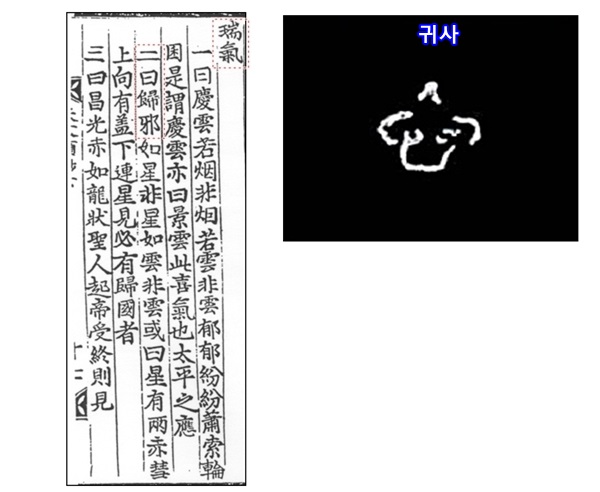 瑞氣
一曰慶雲若烟非烟若雲非雲郁郁紛紛蕭索輪
囷是謂慶雲亦曰景雲此喜氣也太平之應
二曰歸邪如星非星如雲非雲或曰星有兩赤彗
上向有盖下連星見必有歸國者
三曰昌光赤如龍狀聖人起帝受終則見
十二
귀사